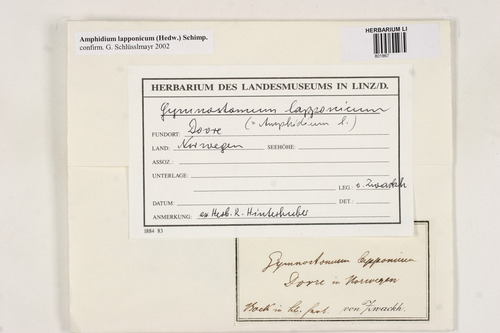 Amphidium lapponicum (Hedw.) Schimp.
confirm. G. Schlüsslmayr 2002
HERBARIUM LI
HERBARIUM DES LANDESMUSEUMS IN LINZ/D.
Gymnostomum lapponicum
(= Amphidium l.)
FUNDORT: Dovre
LAND: Norwegen SEEHÖHE:
ASSOZ.:
UNTERLAGE:
LEG.: v. Zwackh
DATUM: DET.:
ANMERKUNG: ex Herb. R. Hinterhuber
1884 83
Gymnostomum lapponicum
Dovre in Norwegen
von Zwackh.